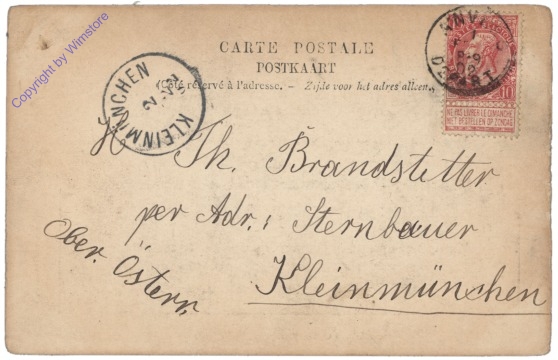 Copyright by Wimstore
CARTE POSTALE
POSTKAART
Côté réservé à l'adresse. – Zijde voor het adres alleen.
KLEINMÜNCHEN
DEPART
10
NE PAS LIVRER LE DIMANCHE
NIET BESTELLEN OP ZONDAG
H Th. Brandstetter
per Adr.: Sternbauer
Kleinmünchen
Ober. Österr.